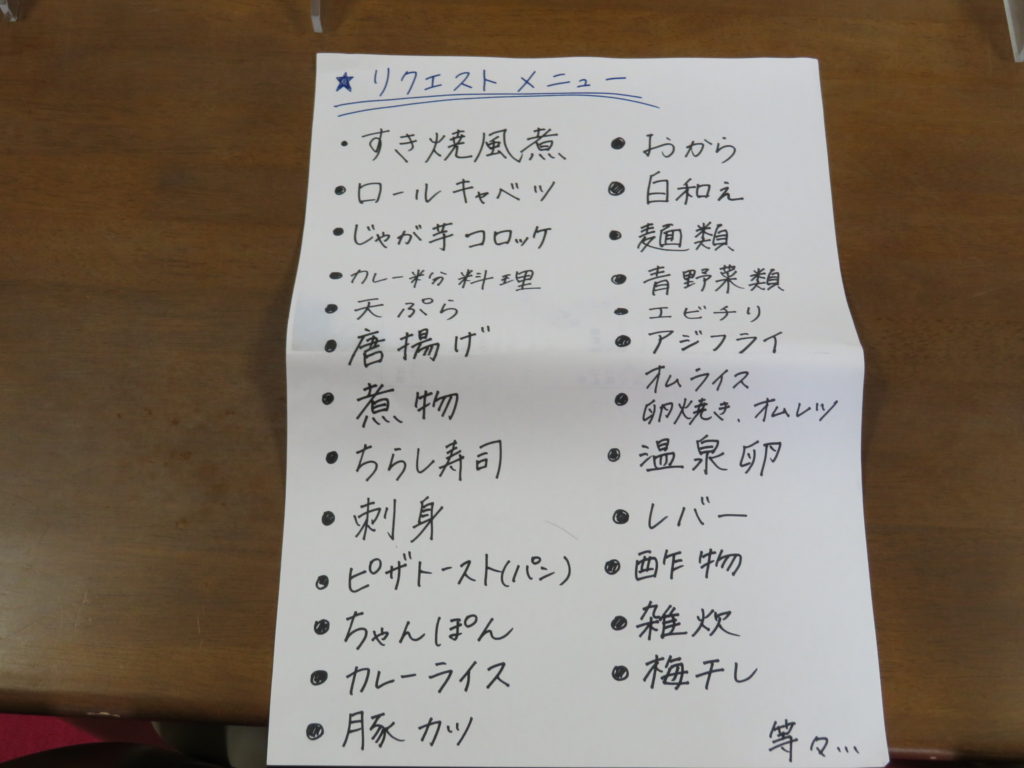 ★ リクエストメニュー
・すき焼風煮
・ロールキャベツ
・じゃが芋コロッケ
・カレー粉料理
・天ぷら
・唐揚げ
・煮物
・ちらし寿司
・刺身
・ピザトースト(パン)
・ちゃんぽん
・カレーライス
・豚カツ
・おから
・白和え
・麺類
・青野菜類
・エビチリ
・アジフライ
・オムライス
卵焼き、オムレツ
・温泉卵
・レバー
・酢物
・雑炊
・梅干し
等々…